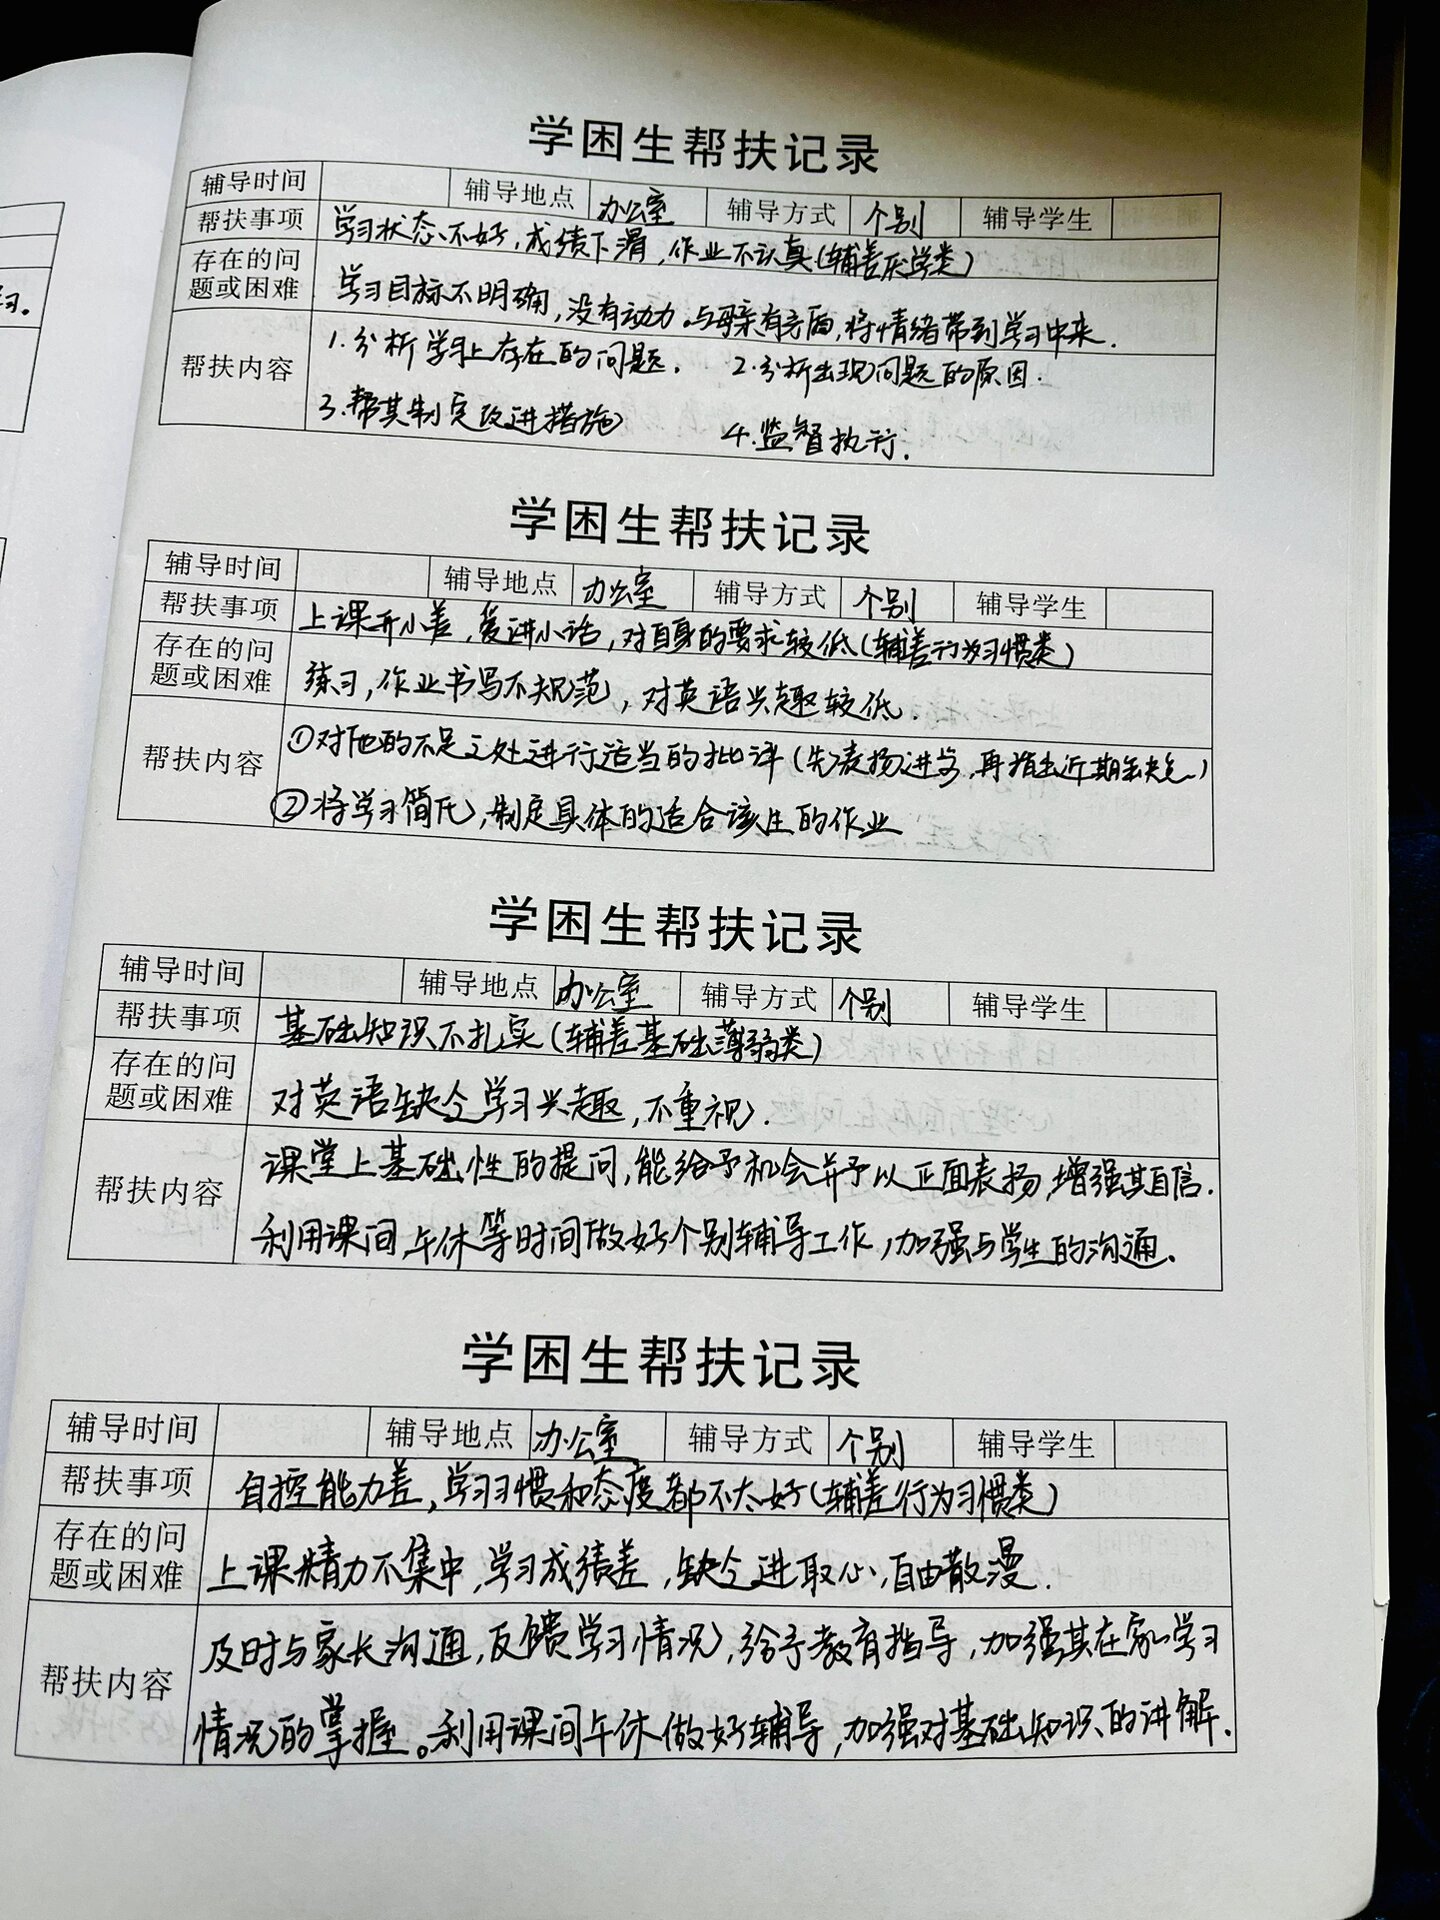 学困生帮扶记录
辅导时间 辅导地点 办公室 辅导方式 个别 辅导学生
帮扶事项 学习状态不好，成绩下滑，作业不认真（辅差厌学类）
存在的问
题或困难 学习目标不明确，没有动力。与母亲有矛盾，将情绪带到学习中来.
帮扶内容 1.分析学习上存在的问题. 2.分析出现问题的原因.
3.帮其制定改进措施 4.监督执行.
学困生帮扶记录
辅导时间 辅导地点 办公室 辅导方式 个别 辅导学生
帮扶事项 上课开小差，爱讲小话，对自身的要求较低（辅差行为习惯类）
存在的问
题或困难 练习，作业书写不规范，对英语兴趣较低.
帮扶内容 ①对他的不足之处进行适当的批评（先表扬进步，再指出近期缺点）
②将学习简化，制定具体的适合该生的作业
学困生帮扶记录
辅导时间 辅导地点 办公室 辅导方式 个别 辅导学生
帮扶事项 基础知识不扎实（辅差基础薄弱类）
存在的问
题或困难 对英语缺今学习兴趣，不重视.
帮扶内容 课堂上基础性的提问，能给予机会并予以正面表扬，增强其自信.
利用课间，午休等时间做好个别辅导工作，加强与学生的沟通.
学困生帮扶记录
辅导时间 辅导地点 办公室 辅导方式 个别 辅导学生
帮扶事项 自控能力差，学习习惯和态度都不太好（辅差行为习惯类）
存在的问
题或困难 上课精力不集中，学习成绩差，缺今进取心，自由散漫.
帮扶内容 及时与家长沟通，反馈学习情况，给予教育指导，加强其在家学习
情况的掌握。利用课间午休做好辅导，加强对基础知识的讲解.
习。